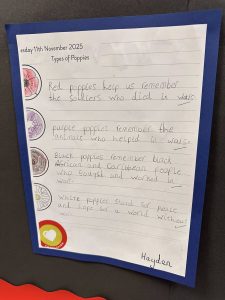 esday 11th November 2025
Types of Poppies
Red poppies help us remember
the soldiers who died in wars.
purple poppies remember the
animals who helped in wars.
Black poppies remember black
African and Caribbean people
who fought and worked in
war.
White poppies stand for peace
and hope for a world without
Hayden